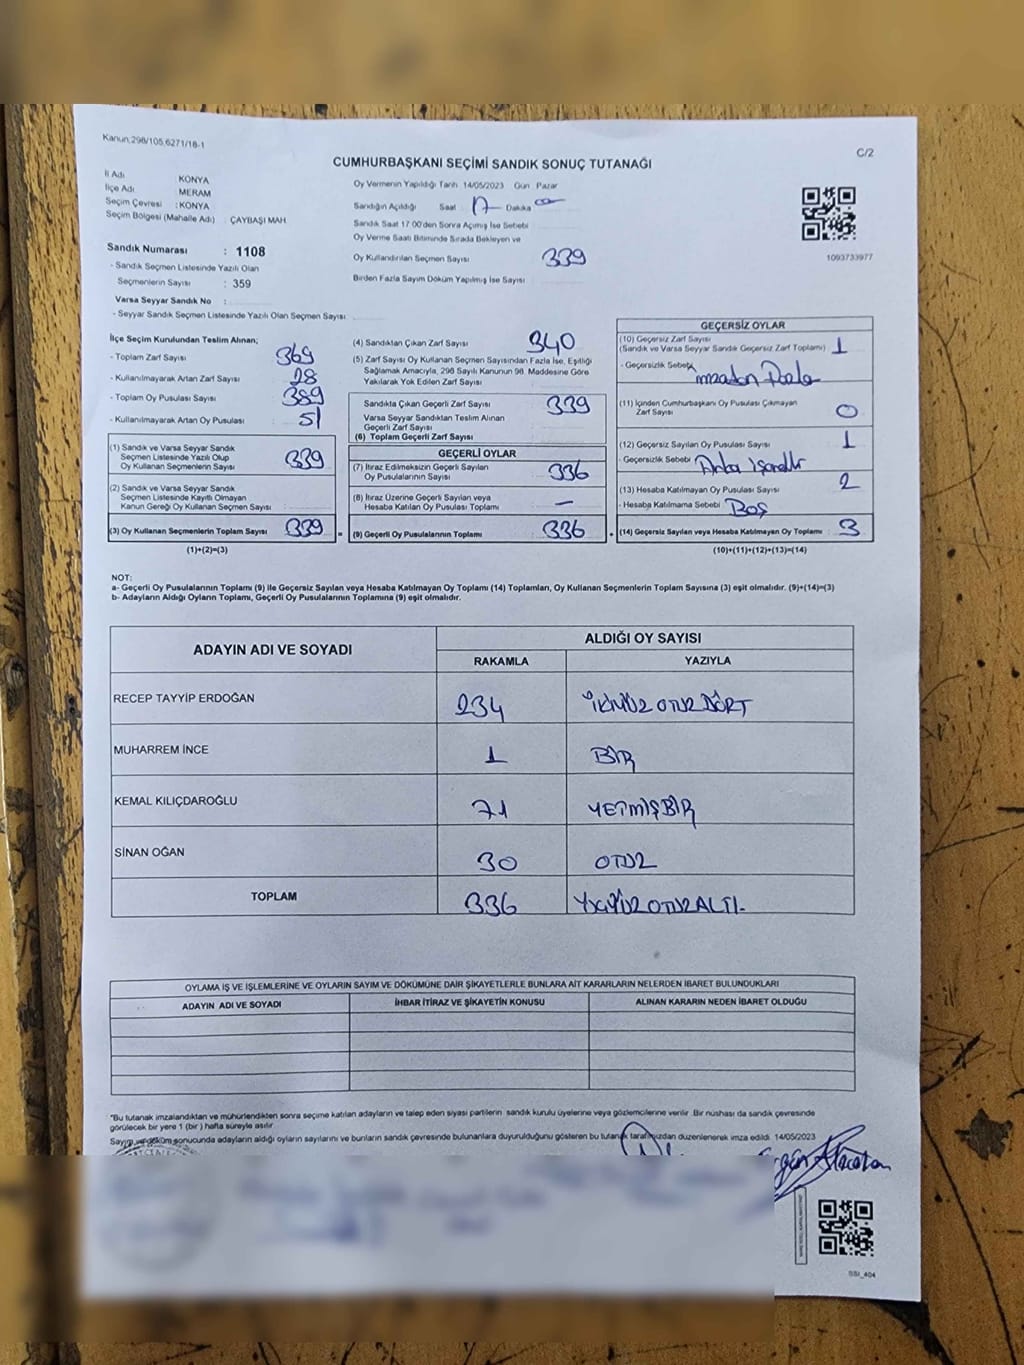 Kanun:298/105,6271/18-1
C/2
CUMHURBAŞKANI SEÇİMİ SANDIK SONUÇ TUTANAĞI
İl Adı KONYA
İlçe Adı : MERAM
Seçim Çevresi : KONYA
Seçim Bölgesi (Mahalle Adı) : ÇAYBAŞI MAH.
Sandık Numarası : 1108
- Sandık Seçmen Listesinde Yazılı Olan
Seçmenlerin Sayısı : 359
Varsa Seyyar Sandık No :
- Seyyar Sandık Seçmen Listesinde Yazılı Olan Seçmen Sayısı
Oy Vermenin Yapıldığı Tarih 14/05/2023 Gün Pazar
Sandığın Açıldığı Saat 17 Dakika 00
Sandık Saat 17:00'den Sonra Açılmış İse Sebebi
Oy Verme Saati Bitiminde Sırada Bekleyen ve
Oy Kullandırılan Seçmen Sayısı 339
Birden Fazla Sayım Döküm Yapılmış İse Sayısı
1093733977
İlçe Seçim Kurulundan Teslim Alınan;
- Toplam Zarf Sayısı 369
- Kullanılmayarak Artan Zarf Sayısı 28
- Toplam Oy Pusulası Sayısı 389
- Kullanılmayarak Artan Oy Pusulası 51
(1) Sandık ve Varsa Seyyar Sandık
Seçmen Listesinde Yazılı Olup
Oy Kullanan Seçmenlerin Sayısı 339
(2) Sandık ve Varsa Seyyar Sandık
Seçmen Listesinde Kayıtlı Olmayan
Kanun Gereği Oy Kullanan Seçmen Sayısı :
(3) Oy Kullanan Seçmenlerin Toplam Sayısı 339
(1)+(2)=(3)
(4) Sandıktan Çıkan Zarf Sayısı 340
(5) Zarf Sayısı Oy Kullanan Seçmen Sayısından Fazla İse, Eşitliği
Sağlamak Amacıyla, 298 Sayılı Kanunun 98. Maddesine Göre
Yakılarak Yok Edilen Zarf Sayısı :
Sandıkta Çıkan Geçerli Zarf Sayısı 339
Varsa Seyyar Sandıktan Teslim Alınan
Geçerli Zarf Sayısı
(6) Toplam Geçerli Zarf Sayısı
GEÇERLİ OYLAR
(7) İtiraz Edilmeksizin Geçerli Sayılan
Oy Pusulalarının Sayısı 336
(8) İtiraz Üzerine Geçerli Sayılan veya
Hesaba Katılan Oy Pusulası Toplamı : —
= (9) Geçerli Oy Pusulalarının Toplamı 336
GEÇERSİZ OYLAR
(10) Geçersiz Zarf Sayısı
(Sandık ve Varsa Seyyar Sandık Geçersiz Zarf Toplamı) 1
- Geçersizlik Sebebi imzadan fazla
(11) İçinden Cumhurbaşkanı Oy Pusulası Çıkmayan
Zarf Sayısı 0
(12) Geçersiz Sayılan Oy Pusulası Sayısı 1
- Geçersizlik Sebebi
(13) Hesaba Katılmayan Oy Pusulası Sayısı 2
- Hesaba Katılmama Sebebi Boş
+ (14) Geçersiz Sayılan veya Hesaba Katılmayan Oy Toplamı : 3
(10)+(11)+(12)+(13)=(14)
NOT:
a- Geçerli Oy Pusulalarının Toplamı (9) ile Geçersiz Sayılan veya Hesaba Katılmayan Oy Toplamı (14) Toplamları, Oy Kullanan Seçmenlerin Toplam Sayısına (3) eşit olmalıdır. (9)+(14)=(3)
b- Adayların Aldığı Oyların Toplamı, Geçerli Oy Pusulalarının Toplamına (9) eşit olmalıdır.
ADAYIN ADI VE SOYADI
ALDIĞI OY SAYISI
RAKAMLA YAZIYLA
RECEP TAYYİP ERDOĞAN 234 İKİYÜZ OTUZ DÖRT
MUHARREM İNCE 1 BİR
KEMAL KILIÇDAROĞLU 71 YETMİŞBİR
SİNAN OĞAN 30 OTUZ
TOPLAM 336 ÜÇYÜZ OTUZ ALTI-
OYLAMA İŞ VE İŞLEMLERİNE VE OYLARIN SAYIM VE DÖKÜMÜNE DAİR ŞİKAYETLERLE BUNLARA AİT KARARLARIN NELERDEN İBARET BULUNDUKLARI
ADAYIN ADI VE SOYADI İHBAR İTİRAZ VE ŞİKAYETİN KONUSU ALINAN KARARIN NEDEN İBARET OLDUĞU
"Bu tutanak imzalandıktan ve mühürlendikten sonra seçime katılan adayların ve talep eden siyasi partilerin sandık kurulu üyelerine veya gözlemcilerine verilir. Bir nüshası da sandık çevresinde
görülecek bir yere 1 (bir) hafta süreyle asılır.
Sayım ve döküm sonucunda adayların aldığı oyların sayılarını ve bunların sandık çevresinde bulunanlara duyurulduğunu gösteren bu tutanak tarafımızdan düzenlenerek imza edildi. 14/05/2023
BSI_404